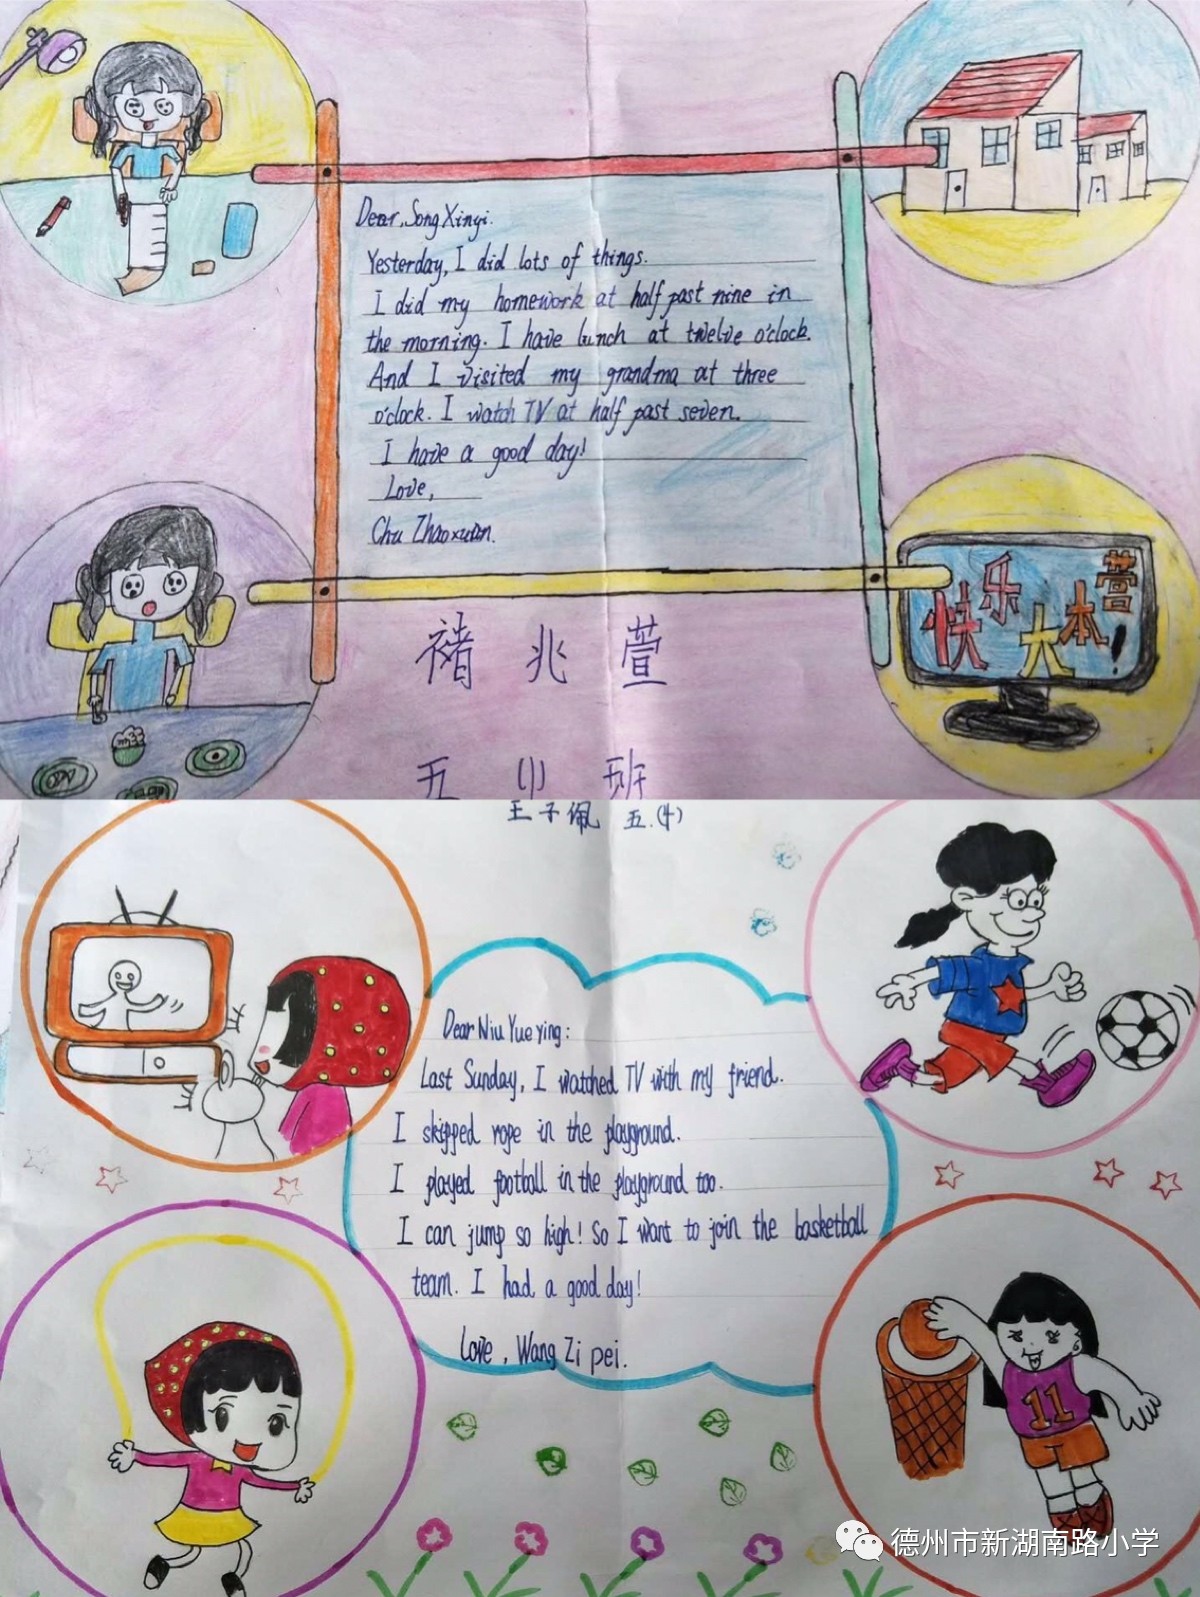 Dear, Song Xinyi.
Yesterday, I did lots of things.
I did my homework at half past nine in
the morning. I have lunch at twelve o'clock.
And I visited my grandma at three
o'clock. I watch TV at half past seven.
I have a good day!
Love,
Chu Zhaoxuan.
快乐大本营!
褚兆萱
五(1)班
王子佩 五.(4)
Dear Niu Yue ying:
Last Sunday, I watched TV with my friend.
I skipped rope in the playground.
I played football in the playground too.
I can jump so high! So I want to join the basketball
team. I had a good day!
Love, Wang Zi pei.
11
德州市新湖南路小学